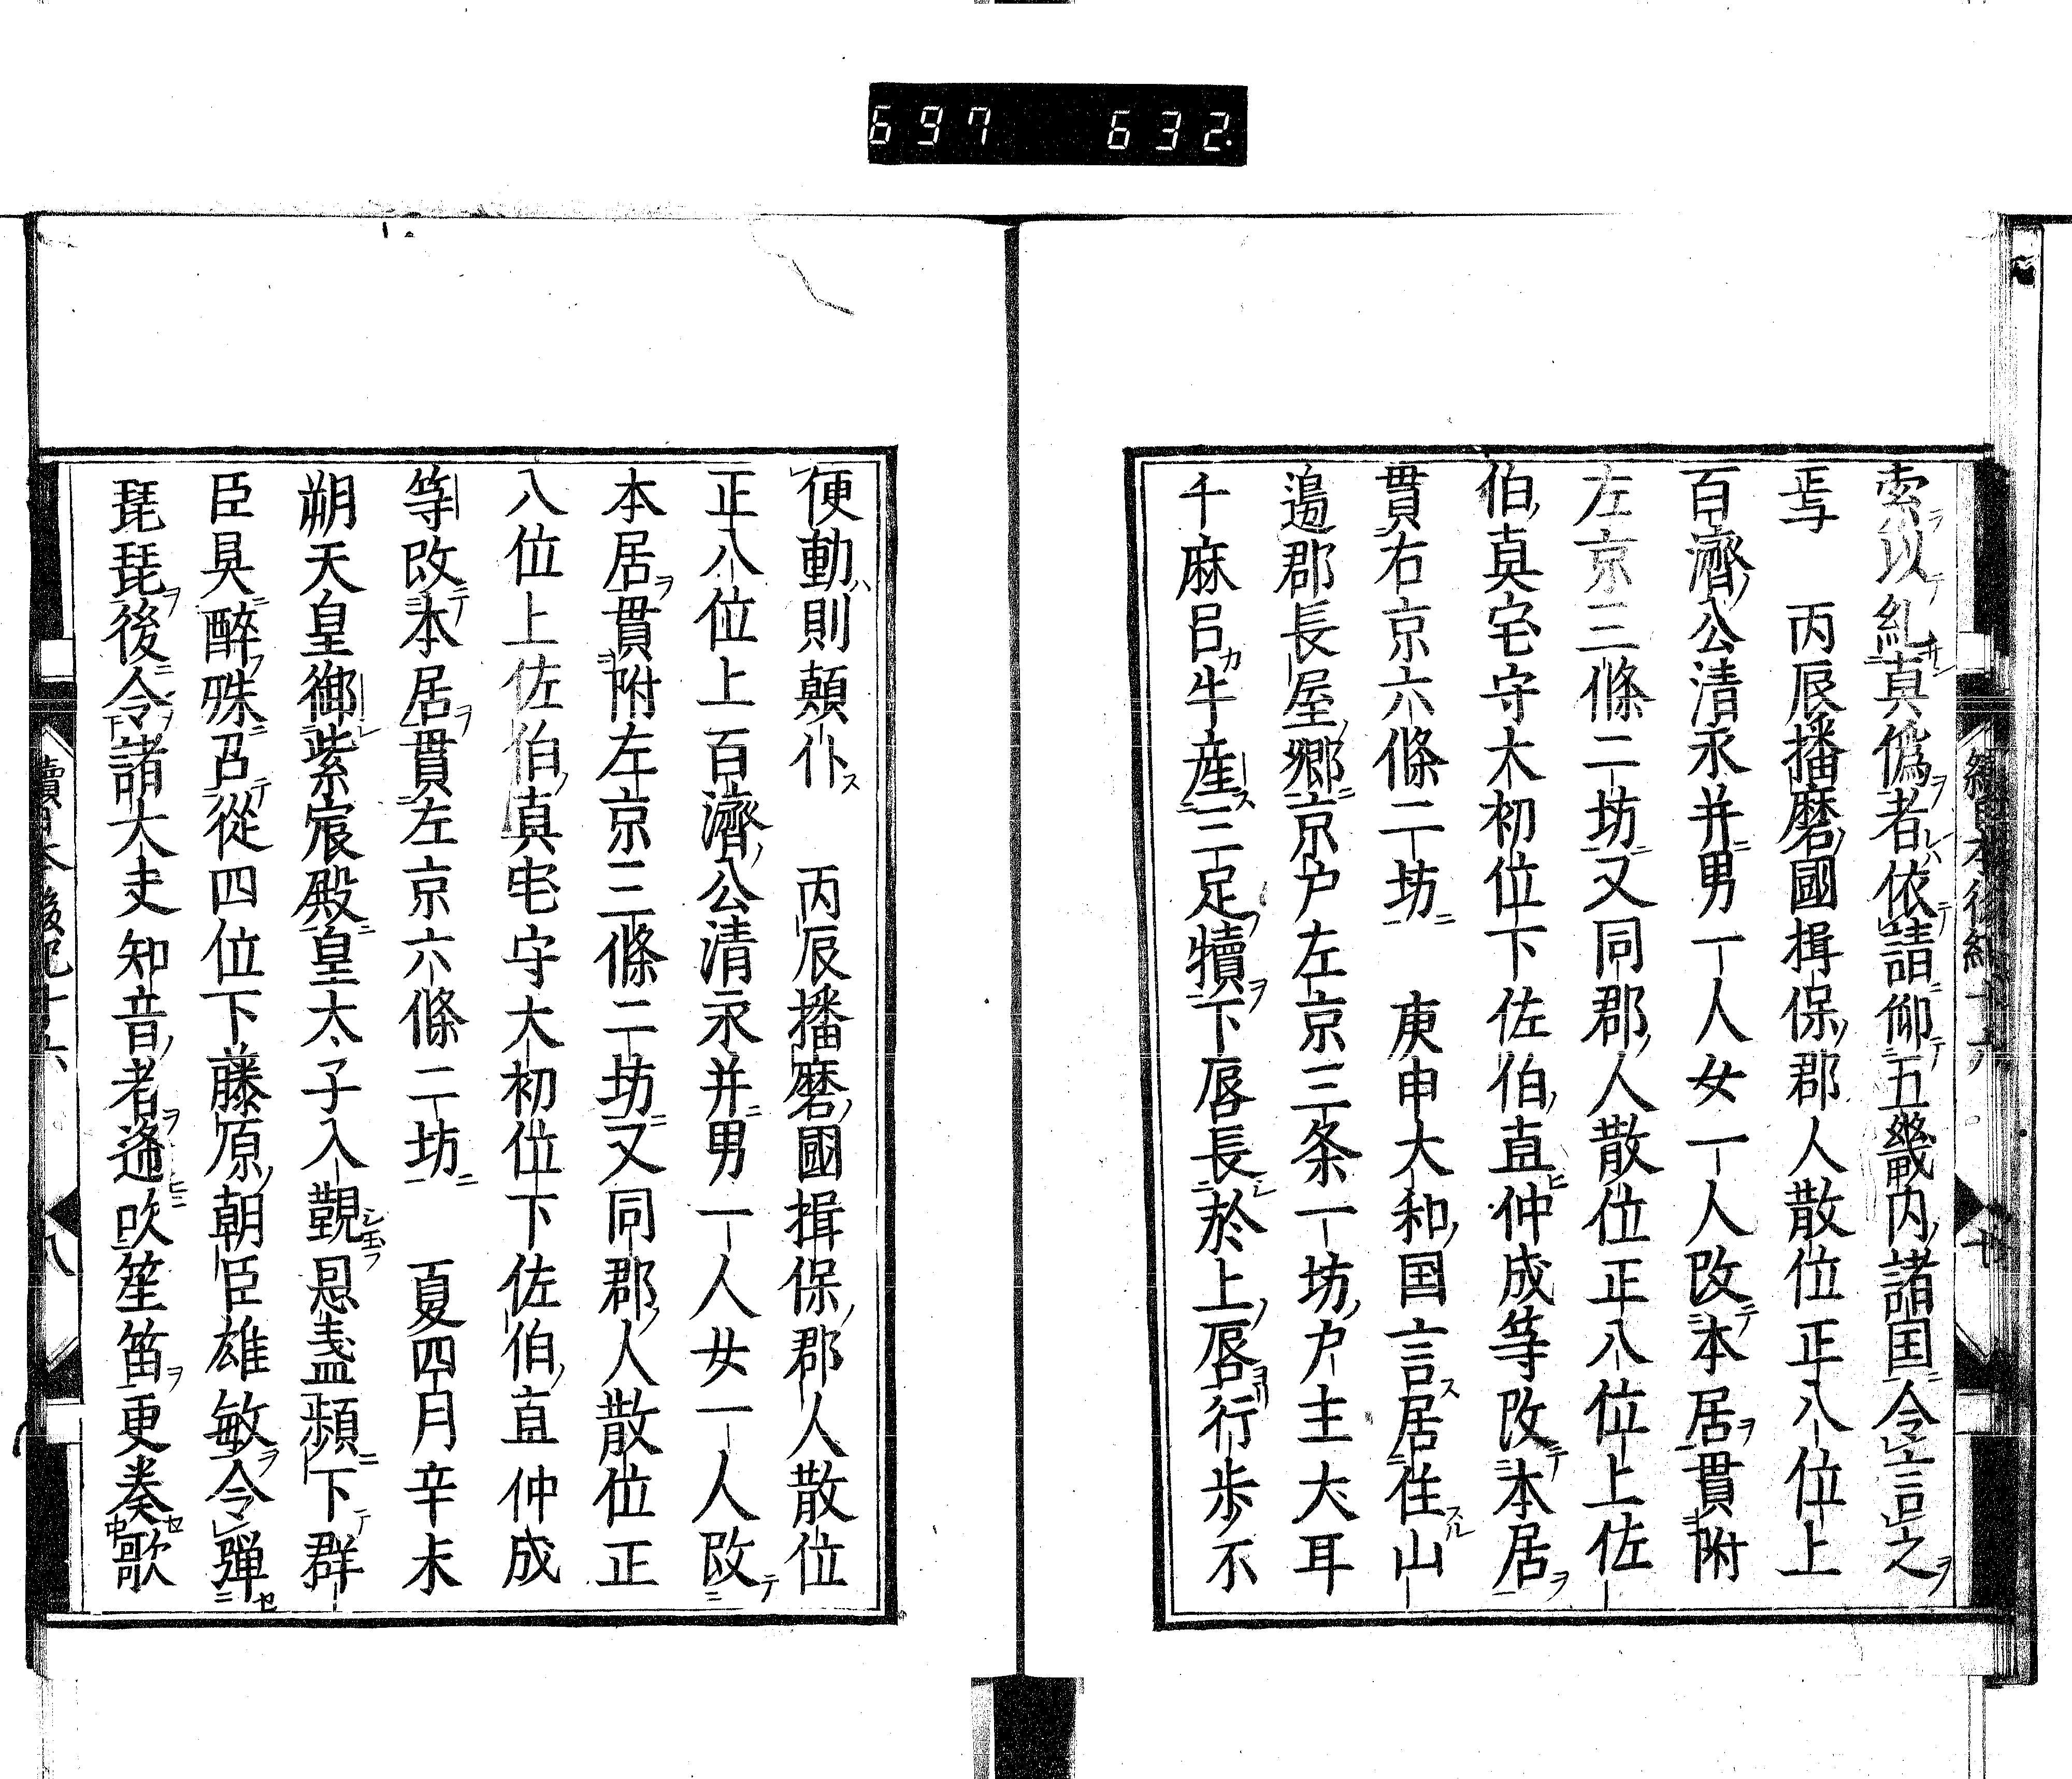 697 632.
索以糺真偽者依請仰五畿内諸国令言之
焉 丙辰播磨國揖保郡人散位正八位上
百濟公清永并男一人女一人改本居貫附
左京三條二坊又同郡人散位正八位上佐
伯真宅守大初位下佐伯直仲成等改本居
貫右京六條二坊 庚申大和国言居住山
邉郡長屋郷京戸左京三条一坊戸主大耳
千麻呂牛産三足犢下唇長於上唇行歩不
便動則顛仆 丙辰播磨國揖保郡人散位
正八位上百濟公清永并男一人女一人改
本居貫附左京三條二坊又同郡人散位正
八位上佐伯真宅守大初位下佐伯直仲成
等改本居貫左京六條二坊 夏四月辛未
朔天皇御紫宸殿皇太子入覲恩盞頻下群
臣具醉殊召從四位下藤原朝臣雄敏令彈
琵琶後令諸大夫知音者逓吹笙笛更奏歌
續日本後紀十六 八